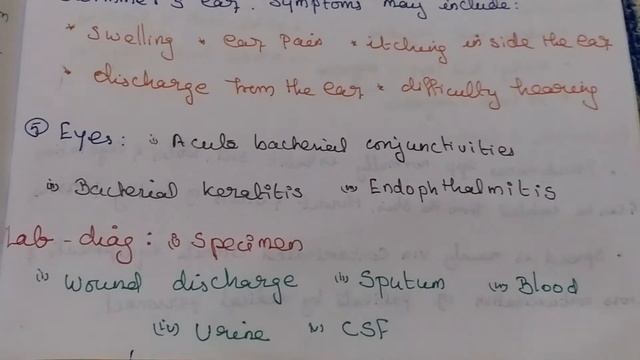 ear. Symptoms may include:
* Swelling * ear Pain * itching in side the ear
* discharge from the ear * difficulty hearing
⑤ Eyes: i) Acute bacterial conjunctivities
ii) Bacterial keratitis iii) Endophthalmitis
Lab-diag: i) Specimen
(i) wound discharge (ii) Sputum (iii) Blood
(iv) Urine v) CSF